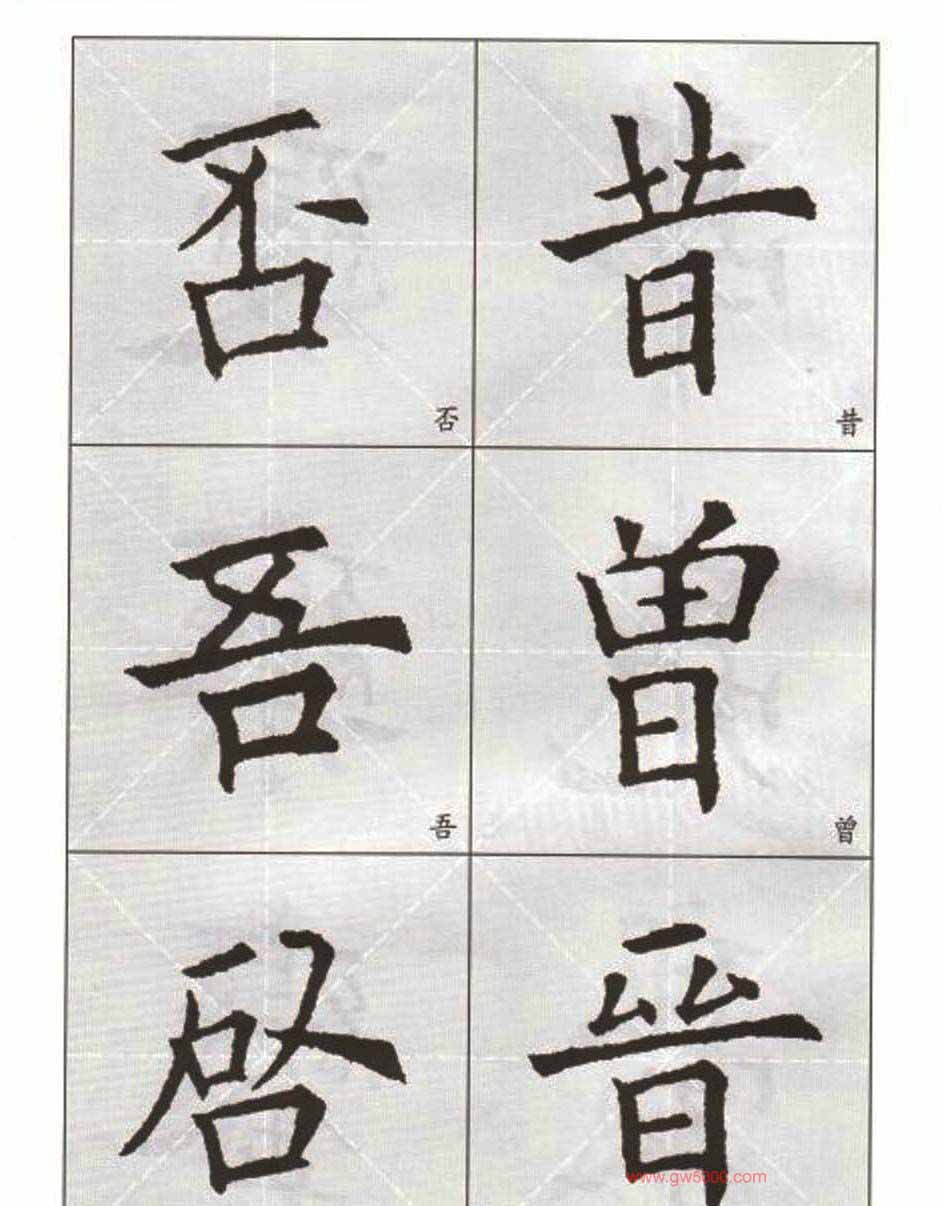 否 昔
否 昔
吾 曾
吾 曾
啓 晉
www.gw5000.com